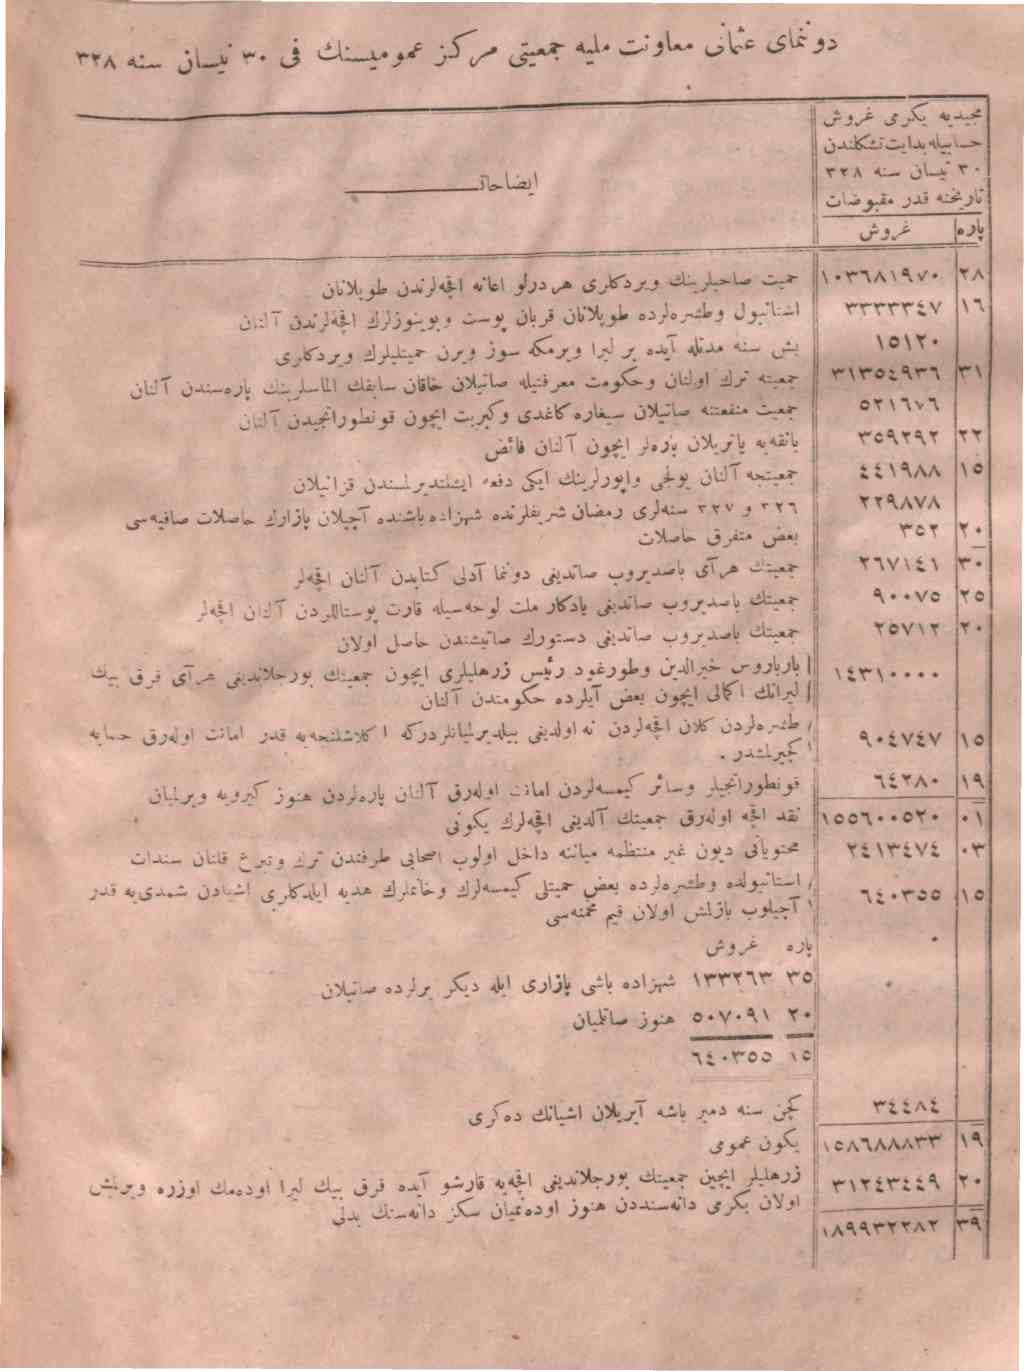 دونمای عثمانی معاونت ملیه جمعیتی مرکز عمومیسنك فی ٣٠ نیسان سنه ٣٢٨
مجیدیه یکرمی غروش
حسابیله بدایت تشکلندن
٣٠ نیسان سنه ٣٢٨
تاریخنه قدر مقبوضات
پاره غروش
ایضاحات
٢٨ ١٠٣٦٨١٩٧٠ حمیت صاحبلرینك ویردکلری هر درلو اعانه اقچه‌لرندن طوپلانان
١٦ ٣٣٣٣٣٤٧ استانبول وطشره‌لرده طوپلانان قربان پوست وبوینوزلرك اقچه‌لرندن آلنان
١٥١٢٠ بش سنه مدتله آیده بر لیرا ویرمکه سوز ویرن حمیتلیلرك ویردکلری
٣١ ٣١٣٥٤٩٣٦ جمعیته ترك اولنان وحکومت معرفتیله صاتیلان خاقان سابقك الماسلرینك پاره‌سندن آلنان
٥٢١٦٧٦ جمعیت منفعتنه صاتیلان سیغاره کاغدی وکبریت ایچون قونطوراتجیدن آلنان
٢٢ ٣٥٩٢٩٢ بانقه‌یه یاتریلان پاره‌لر ایچون آلنان فائض
١٥ ٤٤١٩٨٨ جمعیتجه آلنان یولجی واپورلرینك ایکی دفعه ایشلتدیرلمسندن قزانیلان
٢٢٩٨٧٨ ٣٢٦ و ٣٢٧ سنه‌لری رمضان شریفلرنده شهزاده‌باشنده آچیلان پازارك حاصلات صافیه‌سی
٢٠ ٣٥٢ بعض متفرق حاصلات
٣٠ ٢٦٧١٤١ جمعیتك هر آی باصدیروب صاتدیغی دونما آدلی کتابدن آلنان اقچه‌لر
٢٥ ٩٠٠٧٥ جمعیتك باصدیروب صاتدیغی یادکار ملت لوحه‌سیله قارت پوستاللردن آلنان اقچه‌لر
٢٠ ٢٥٧١٢ جمعیتك باصدیروب صاتدیغی دستورك صاتیشندن حاصل اولان
١٤٣١٠٠٠٠ بارباروس خیرالدین وطورغود رئیس زرهلیلری ایچون جمعیتك بورجلاندیغی هر آی قرق بیك
لیرانك اکمالی ایچون بعض آیلرده حکومتدن آلنان
١٥ ٩٠٤٧٤٧ طشره‌لردن کلان اقچه‌لردن نه اولدیغی بیلدیرلمیانلردرکه اکلاشلنجه‌یه قدر امانت اوله‌رق حسابه
کچیرلمشدر .
١٩ ٦٤٢٨٠ قونطوراتجیلر وسائر کیمسه‌لردن امانت اوله‌رق آلنان پاره‌لردن هنوز کیرویه ویرلمیان
٠١ ١٥٥٦٠٠٥٢٠ نقد اقچه اوله‌رق جمعیتك آلدیغی اقچه‌لرك یکونی
٠٣ ٢٤١٣٤٧٤ محتویاتی دیون غیر منتظمه میاننه داخل اولوب اصحابی طرفندن ترك وتبرع قلنان سندات
١٥ ٦٤٠٣٥٥ استانبولده وطشره‌لرده بعض حمیتلی کیمسه‌لرك وخانملرك هدیه ایلدکلری اشیادن شمدی‌یه قدر
آچیلوب یازلمش اولان قیم مخمنه‌سی
پاره غروش
٣٥ ١٣٣٢٦٣ شهزاده باشی پازاری ایله دیکر یرلرده صاتیلان
٢٠ ٥٠٧٠٩١ هنوز صاتلمیان
١٥ ٦٤٠٣٥٥
٣٤٤٨٤ کچن سنه دمیر باشه آیریلان اشیانك ده‌کری
١٩ ١٥٨٦٨٨٨٣٣ یکون عمومی
٢٠ ٣١٢٤٣٤٤٩ زرهلیلر ایچین جمعیتك بورجلاندیغی اقچه‌یه قارشو آیده قرق بیك لیرا اوده‌مك اوزره ویرلمش
اولان یکرمی دانه‌سنددن هنوز اوده‌نمیان سکز دانه‌سنك بدلی
٣٩ ١٨٩٩٣٢٢٨٢